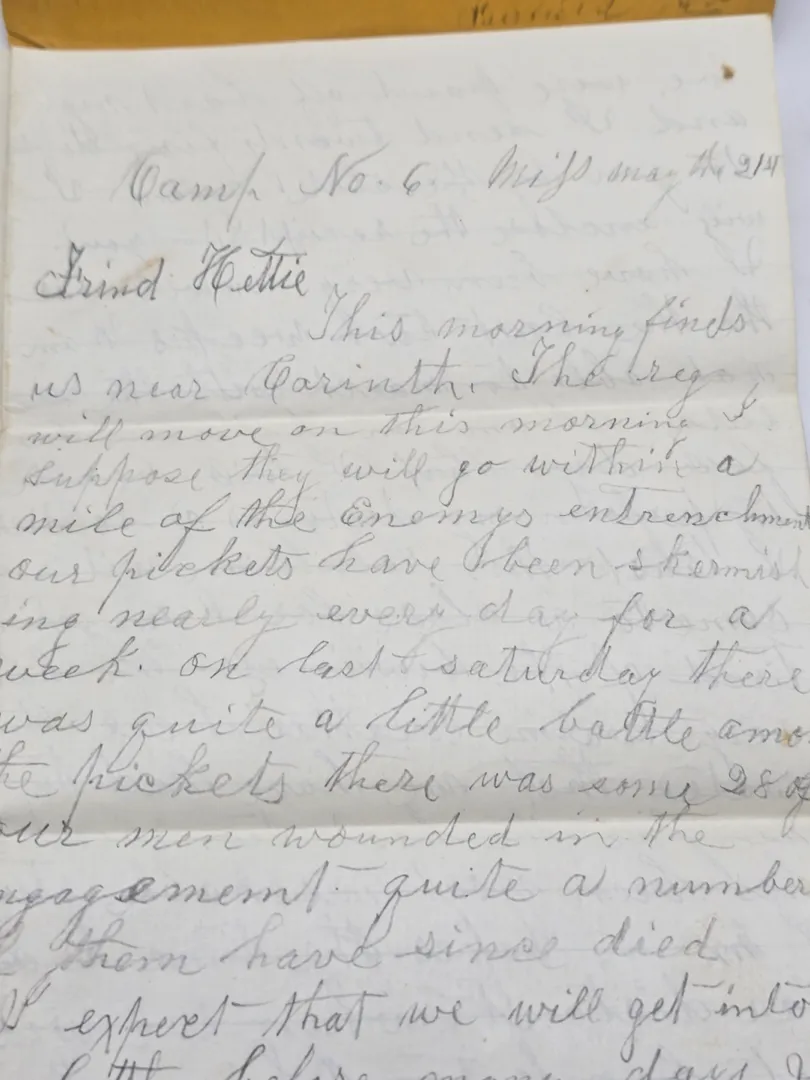 Camp No. 6. Miss may th, 21st
Frind Hettie,
This morning finds
us near Corinth. The reg
will move on this morning I
suppose they will go within a
mile of the Enemys entrenchment
our pickets have been skermish
ing nearly every day for a
week. on last saturday there
was quite a little battle amo
he pickets there was some 28 of
our men wounded in the
ngagement quite a number
them have since died
I expect that we will get into
before many days